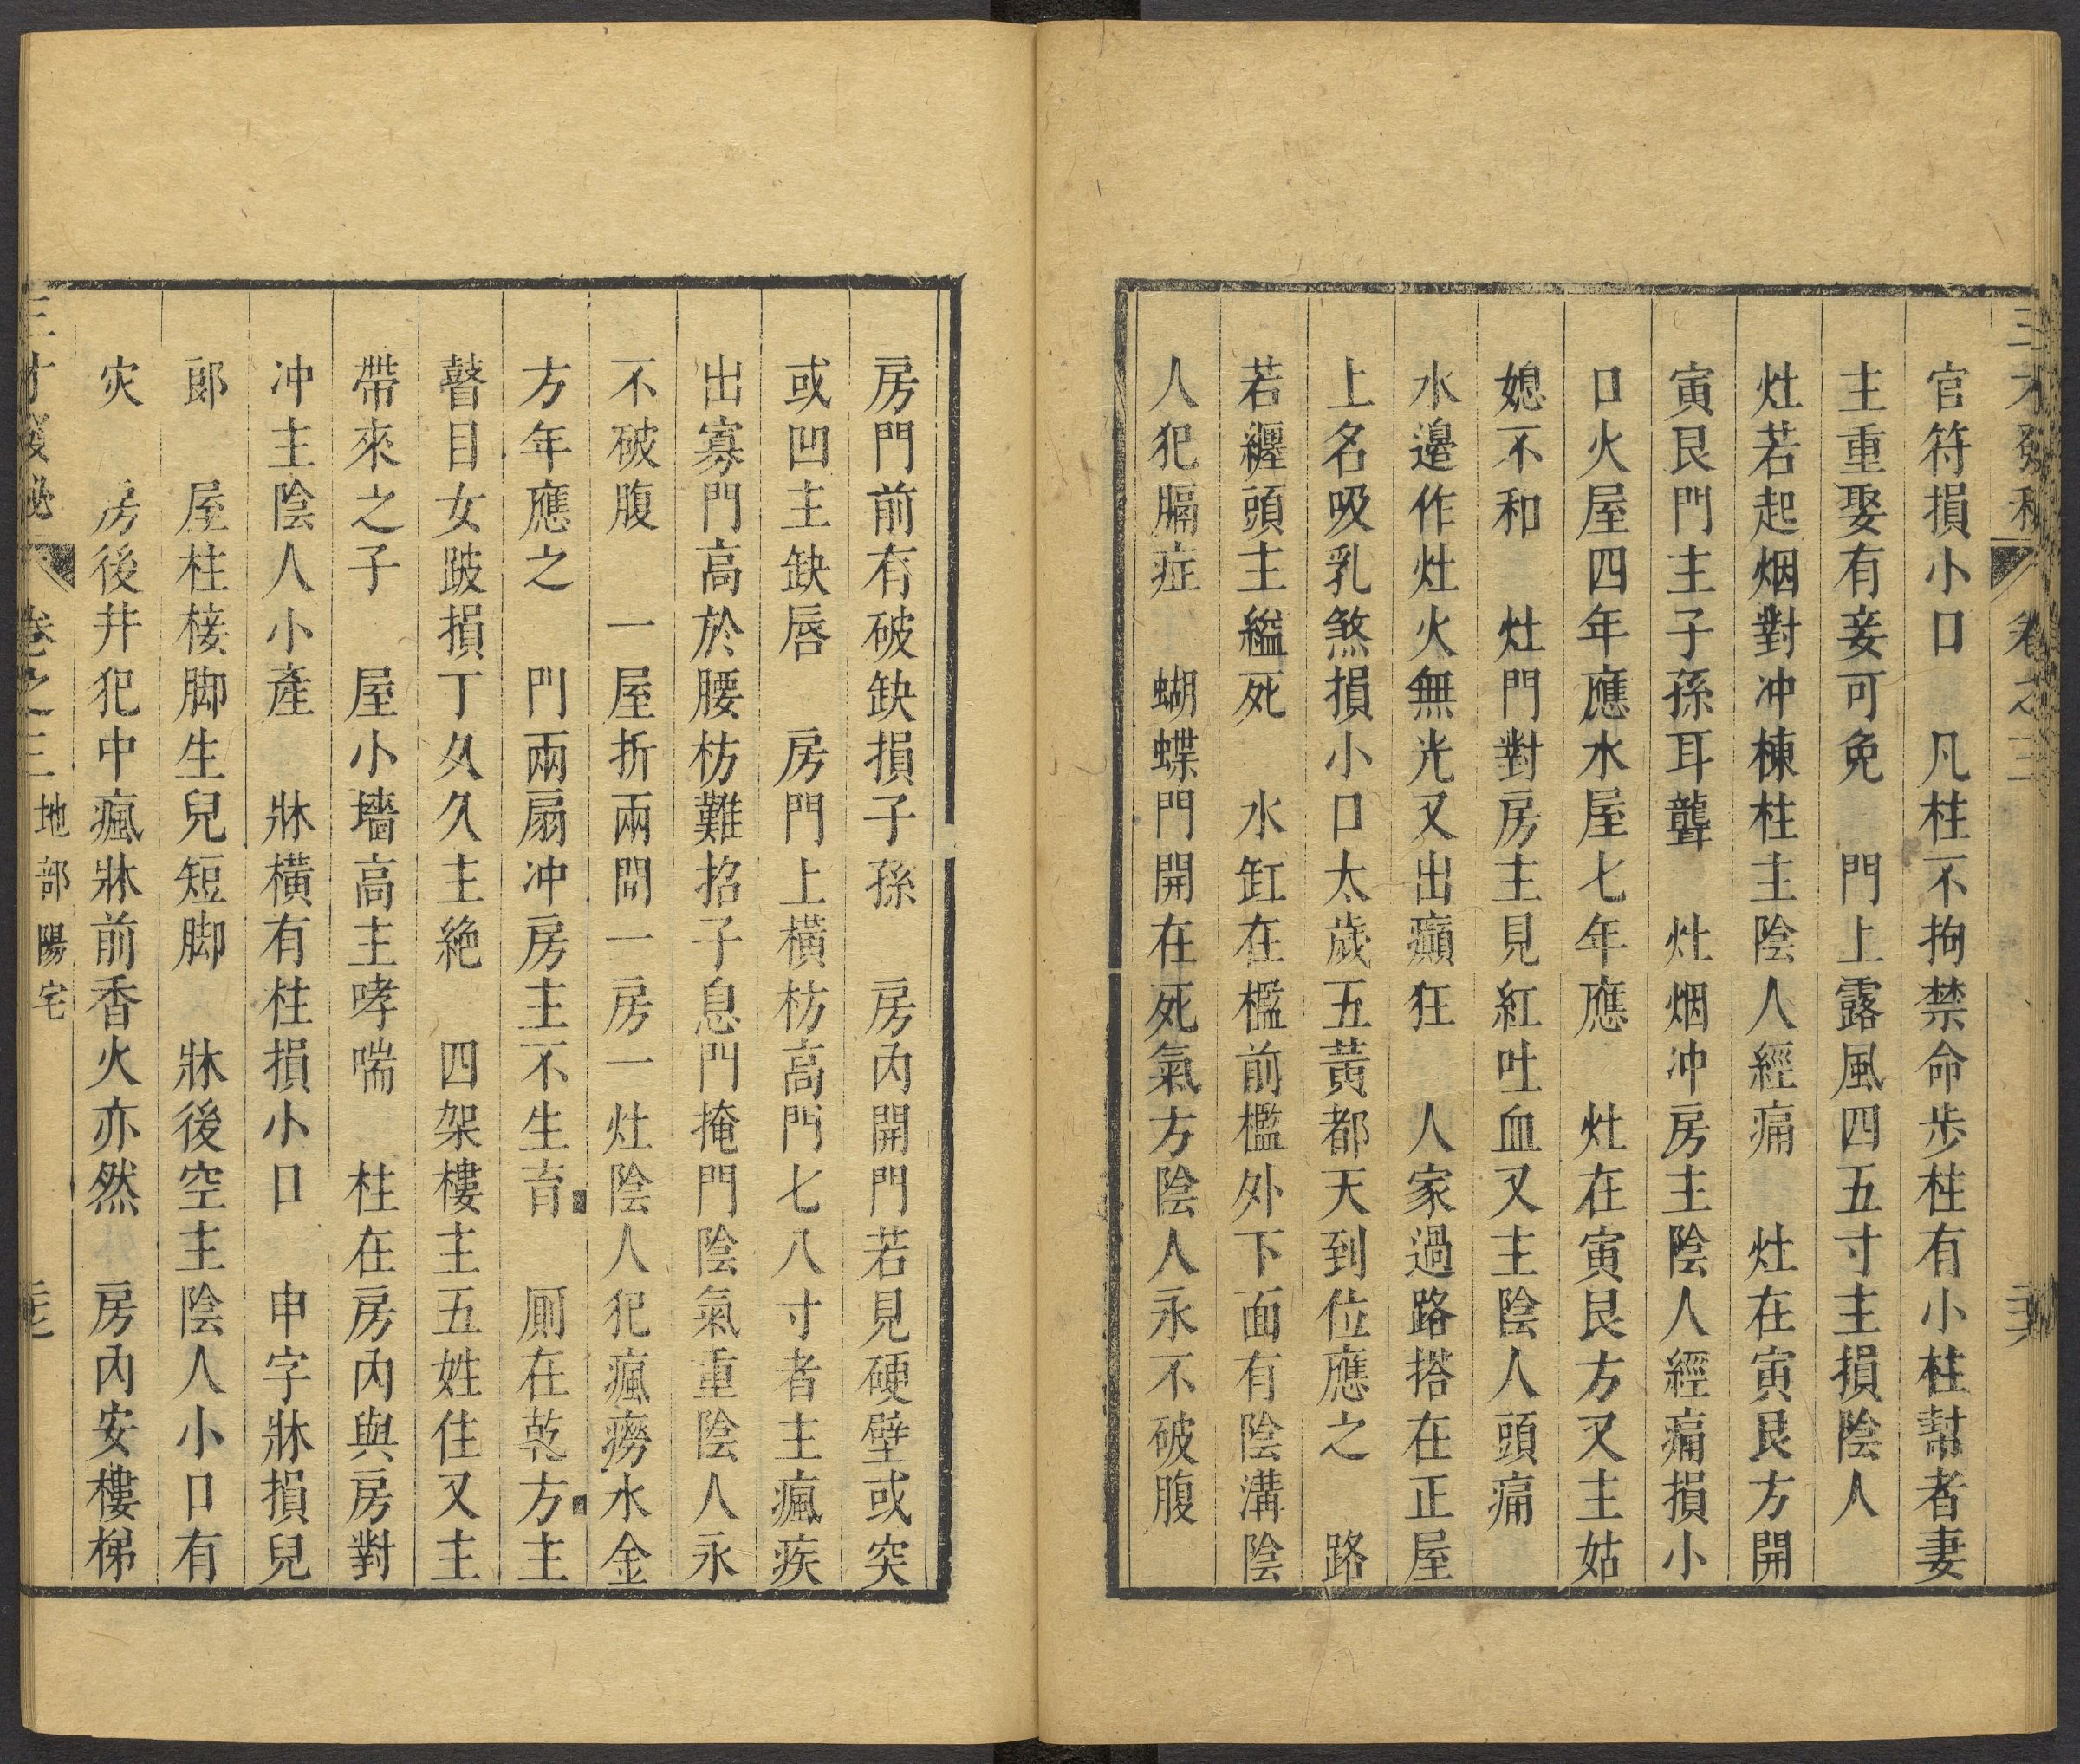 官符損小口　凡柱不拘禁命步柱有小柱幇者妻
主重娶有妾可免　門上露風四五寸主損陰人
灶若起烟對冲棟柱主陰人經痛　灶在寅艮方開
寅艮門主子孫耳聾　灶烟冲房主陰人經痛損小
口火屋四年應水屋七年應　灶在寅艮方又主姑
媳不和　灶門對房主見紅吐血又主陰人頭痛
水邉作灶火無光又出癲狂　人家過路搭在正屋
上名吸乳煞損小口太歲五黃都天到位應之　路
若纒頭主縊死　水缸在檻前檻外下面有陰溝陰
人犯膈症　蝴蝶門開在死氣方陰人永不破腹
房門前有破缺損子孫　房內開門若見硬壁或突
或凹主缺唇　房門上橫枋高門七八寸者主瘋疾
出寡門高於腰枋難招子息門掩門陰氣重陰人永
不破腹　一屋折兩間一房一灶陰人犯瘋癆水金
方年應之　門兩扇冲房主不生育　厠在乾方主
瞽目女跛損丁久久主絶　四架樓主五姓住又主
帶來之子　屋小墻高主哮喘　柱在房內與房對
冲主陰人小產　牀橫有柱損小口　申字牀損兒
郎　屋柱椄脚生兒短脚　牀後空主陰人小口有
灾　房後井犯中瘋牀前香火亦然　房內安樓梯
卷之三 地部 陽宅